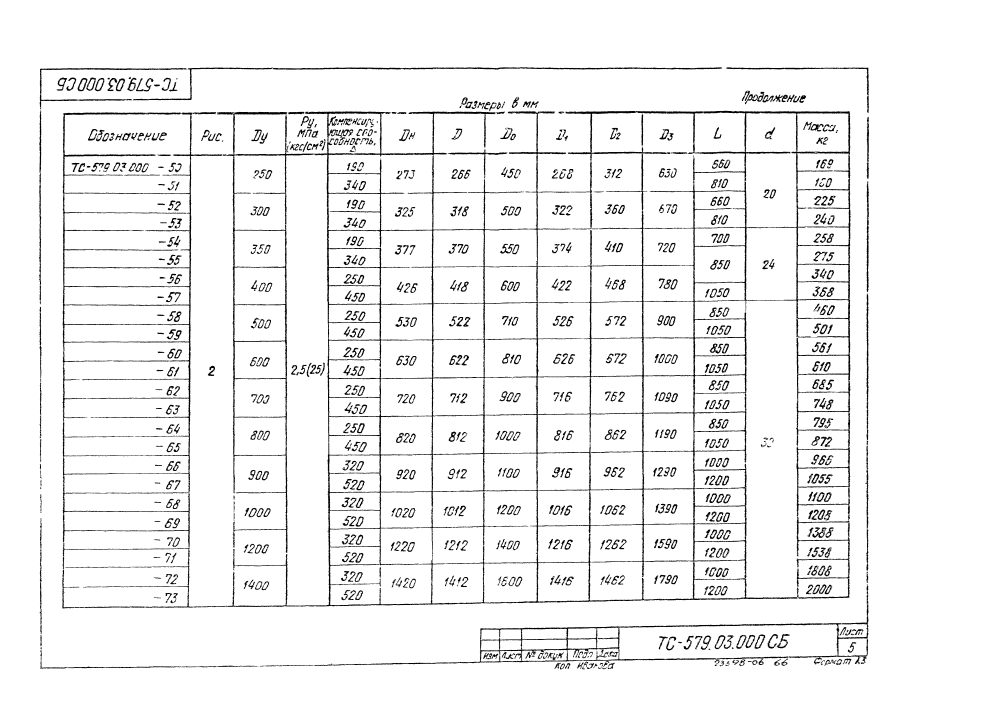 ТС-579.03.000 СБ
Размеры в мм
Продолжение
Обозначение Рис. Dу Ру, мпа (кгс/см²) Компенсирующая способность, Dн D D₀ D₁ D₂ D₃ L d Масса, кг
ТС-579.03.000 - 50 2 250 2,5(25) 190 273 266 450 268 312 630 660 20 169
- 51 340 810
- 52 300 190 325 318 500 322 360 670 660 225
- 53 340 810 240
- 54 350 190 377 370 550 374 410 720 700 24 258
- 55 340 850 275
- 56 400 250 426 418 600 422 468 780 340
- 57 450 1050 368
- 58 500 250 530 522 710 526 572 900 850 460
- 59 450 1050 501
- 60 600 250 630 622 810 626 672 1000 850 561
- 61 450 1050 610
- 62 700 250 720 712 900 716 762 1090 850 685
- 63 450 1050 748
- 64 800 250 820 812 1000 816 862 1190 850 795
- 65 450 1050 872
- 66 900 320 920 912 1100 916 962 1290 1000 966
- 67 520 1200 1055
- 68 1000 320 1020 1012 1200 1016 1062 1390 1000 1100
- 69 520 1200 1208
- 70 1200 320 1220 1212 1400 1216 1262 1590 1000 1388
- 71 520 1200 1538
- 72 1400 320 1420 1412 1600 1416 1462 1790 1000 1808
- 73 520 1200 2000
ТС-579.03.000 СБ
Лист
5
Изм Лист № докум Подп Дата
Коп Иванова
Формат А3